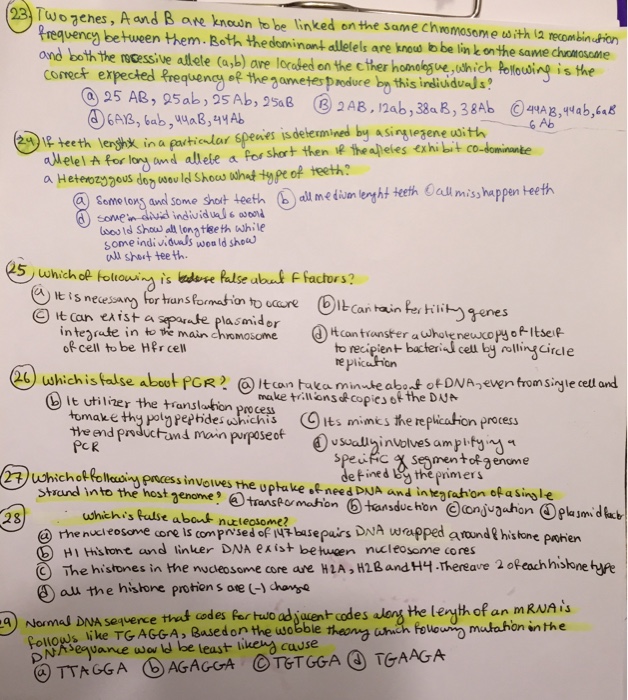 23) Two genes, A and B are known to be linked on the same chromosome with 12 recombination
frequency between them. Both the dominant allelels are know to be link on the same chromosome
and both the recessive allele (a,b) are located on the other homologue, which following is the
correct expected frequency of the gametes produce by this individuals?
(a) 25 AB, 25ab, 25Ab, 25aB (B) 2AB, 12ab, 38aB, 38Ab (C) 44AB, 44ab, 6aB
6 Ab
(d) 6AB, 6ab, 44aB, 44Ab
24) If teeth lenght in a particular species is determined by a single gene with
allelel A for long and allele a for short then if the alleles exhibit co-dominante
a Heterozygous dog would show what type of teeth?
(a) some long and some short teeth (b) all medium lenght teeth (c) all misshappen teeth
(d) some individual individuals would
would show all long teeth while
some individuals would show
all short teeth.
25) Which of following is false about F factors?
(a) It is necessary for transformation to occure (b) It cantain fertility genes
(c) it can exist a separate plasmid or
integrate in to the main chromosome
of cell to be Hfr cell
(d) it can transfer a whole new copy of Itself
to recipient bacterial cell by rolling circle
replication
26) which is false about PCR? (a) It can take minute about of DNA, even from single cell and
make trillions of copies of the DNA
(b) It utilizer the translation process
to make thy polypeptides which is
the end product and main purpose of
PCR
(c) Its mimics the replication process
(d) usually involves amplifying a
specific segment of genome
defined by the primers
27) Which of following process involves the uptake of need DNA and integration of a single
strand into the host genome? (a) transformation (b) transduction (c) conjugation (d) plasmid
28) which is false about nucleosome?
(a) The nucleosome core is comprised of 147 base pairs DNA wrapped around 8 histone protien
(b) H1 Histone and linker DNA exist between nucleosome cores
(c) The histones in the nucleosome core are H2A, H2B and H4. There are 2 of each histone type
(d) all the histone protions are (-) charge
29) Normal DNA sequence that codes for two adjacent codes along the length of an mRNA is
follows like TGAGGA, Based on the wobble theory which following mutation in the
DNA sequance would be least likely cause
(a) TTAGGA (b) AGAGGA (c) TGTGGA (d) TGAAGA